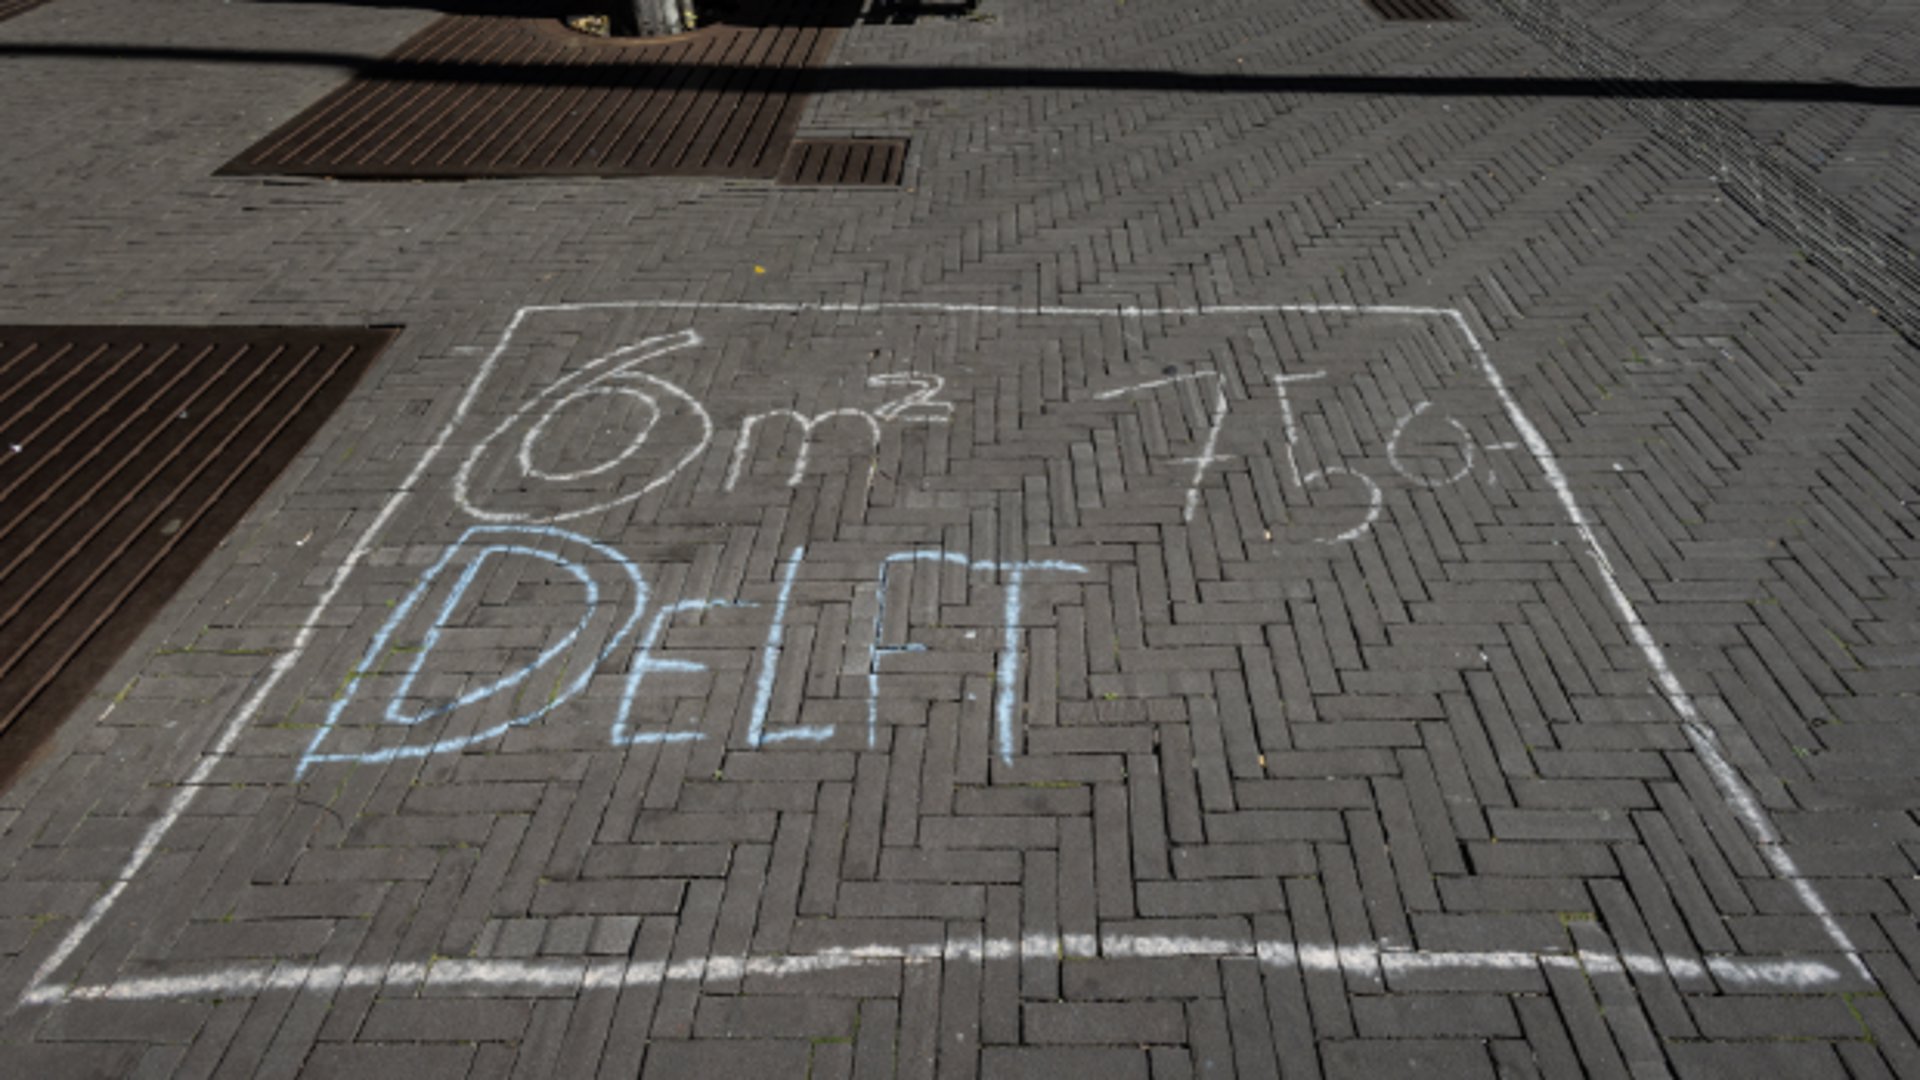 6m² 750,-
DELFT